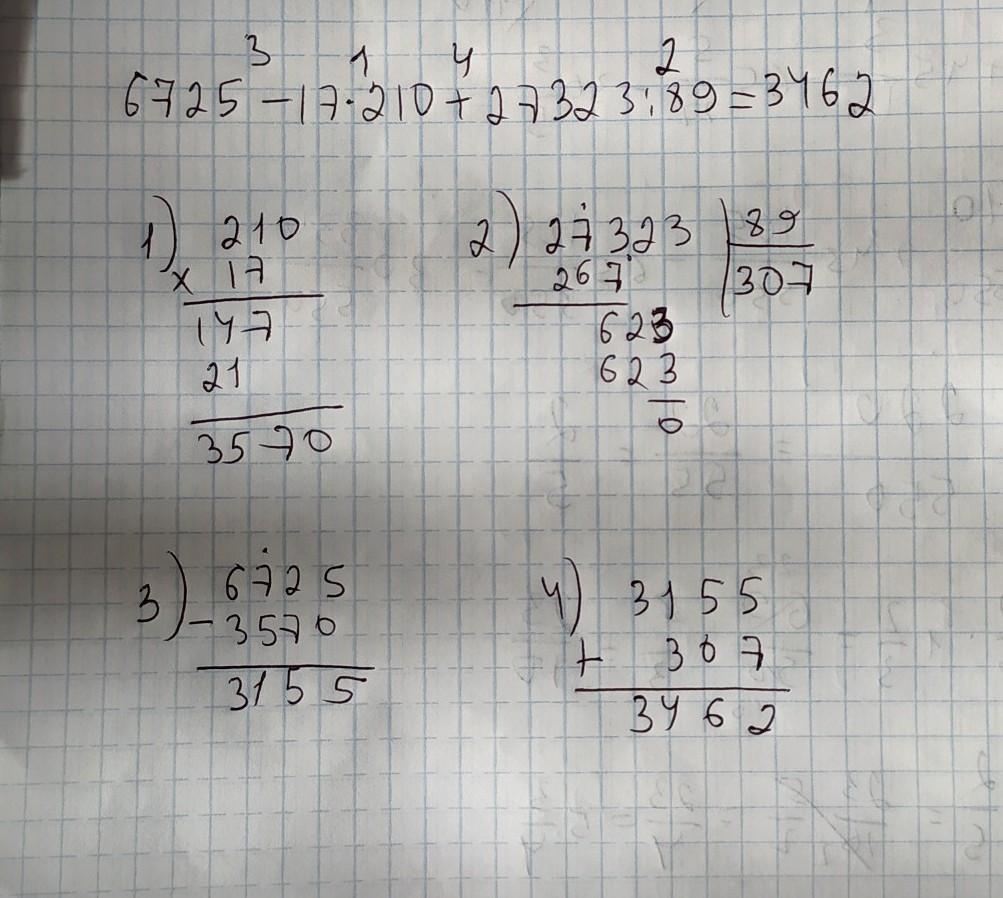 3 1 4 2
6725 - 17 · 210 + 27323 : 89 = 3462
1) 210
× 17
147
21
3570
2) 27323 | 89
267 | 307
623
623
0
3) 6725
- 3570
3155
4) 3155
+ 307
3462